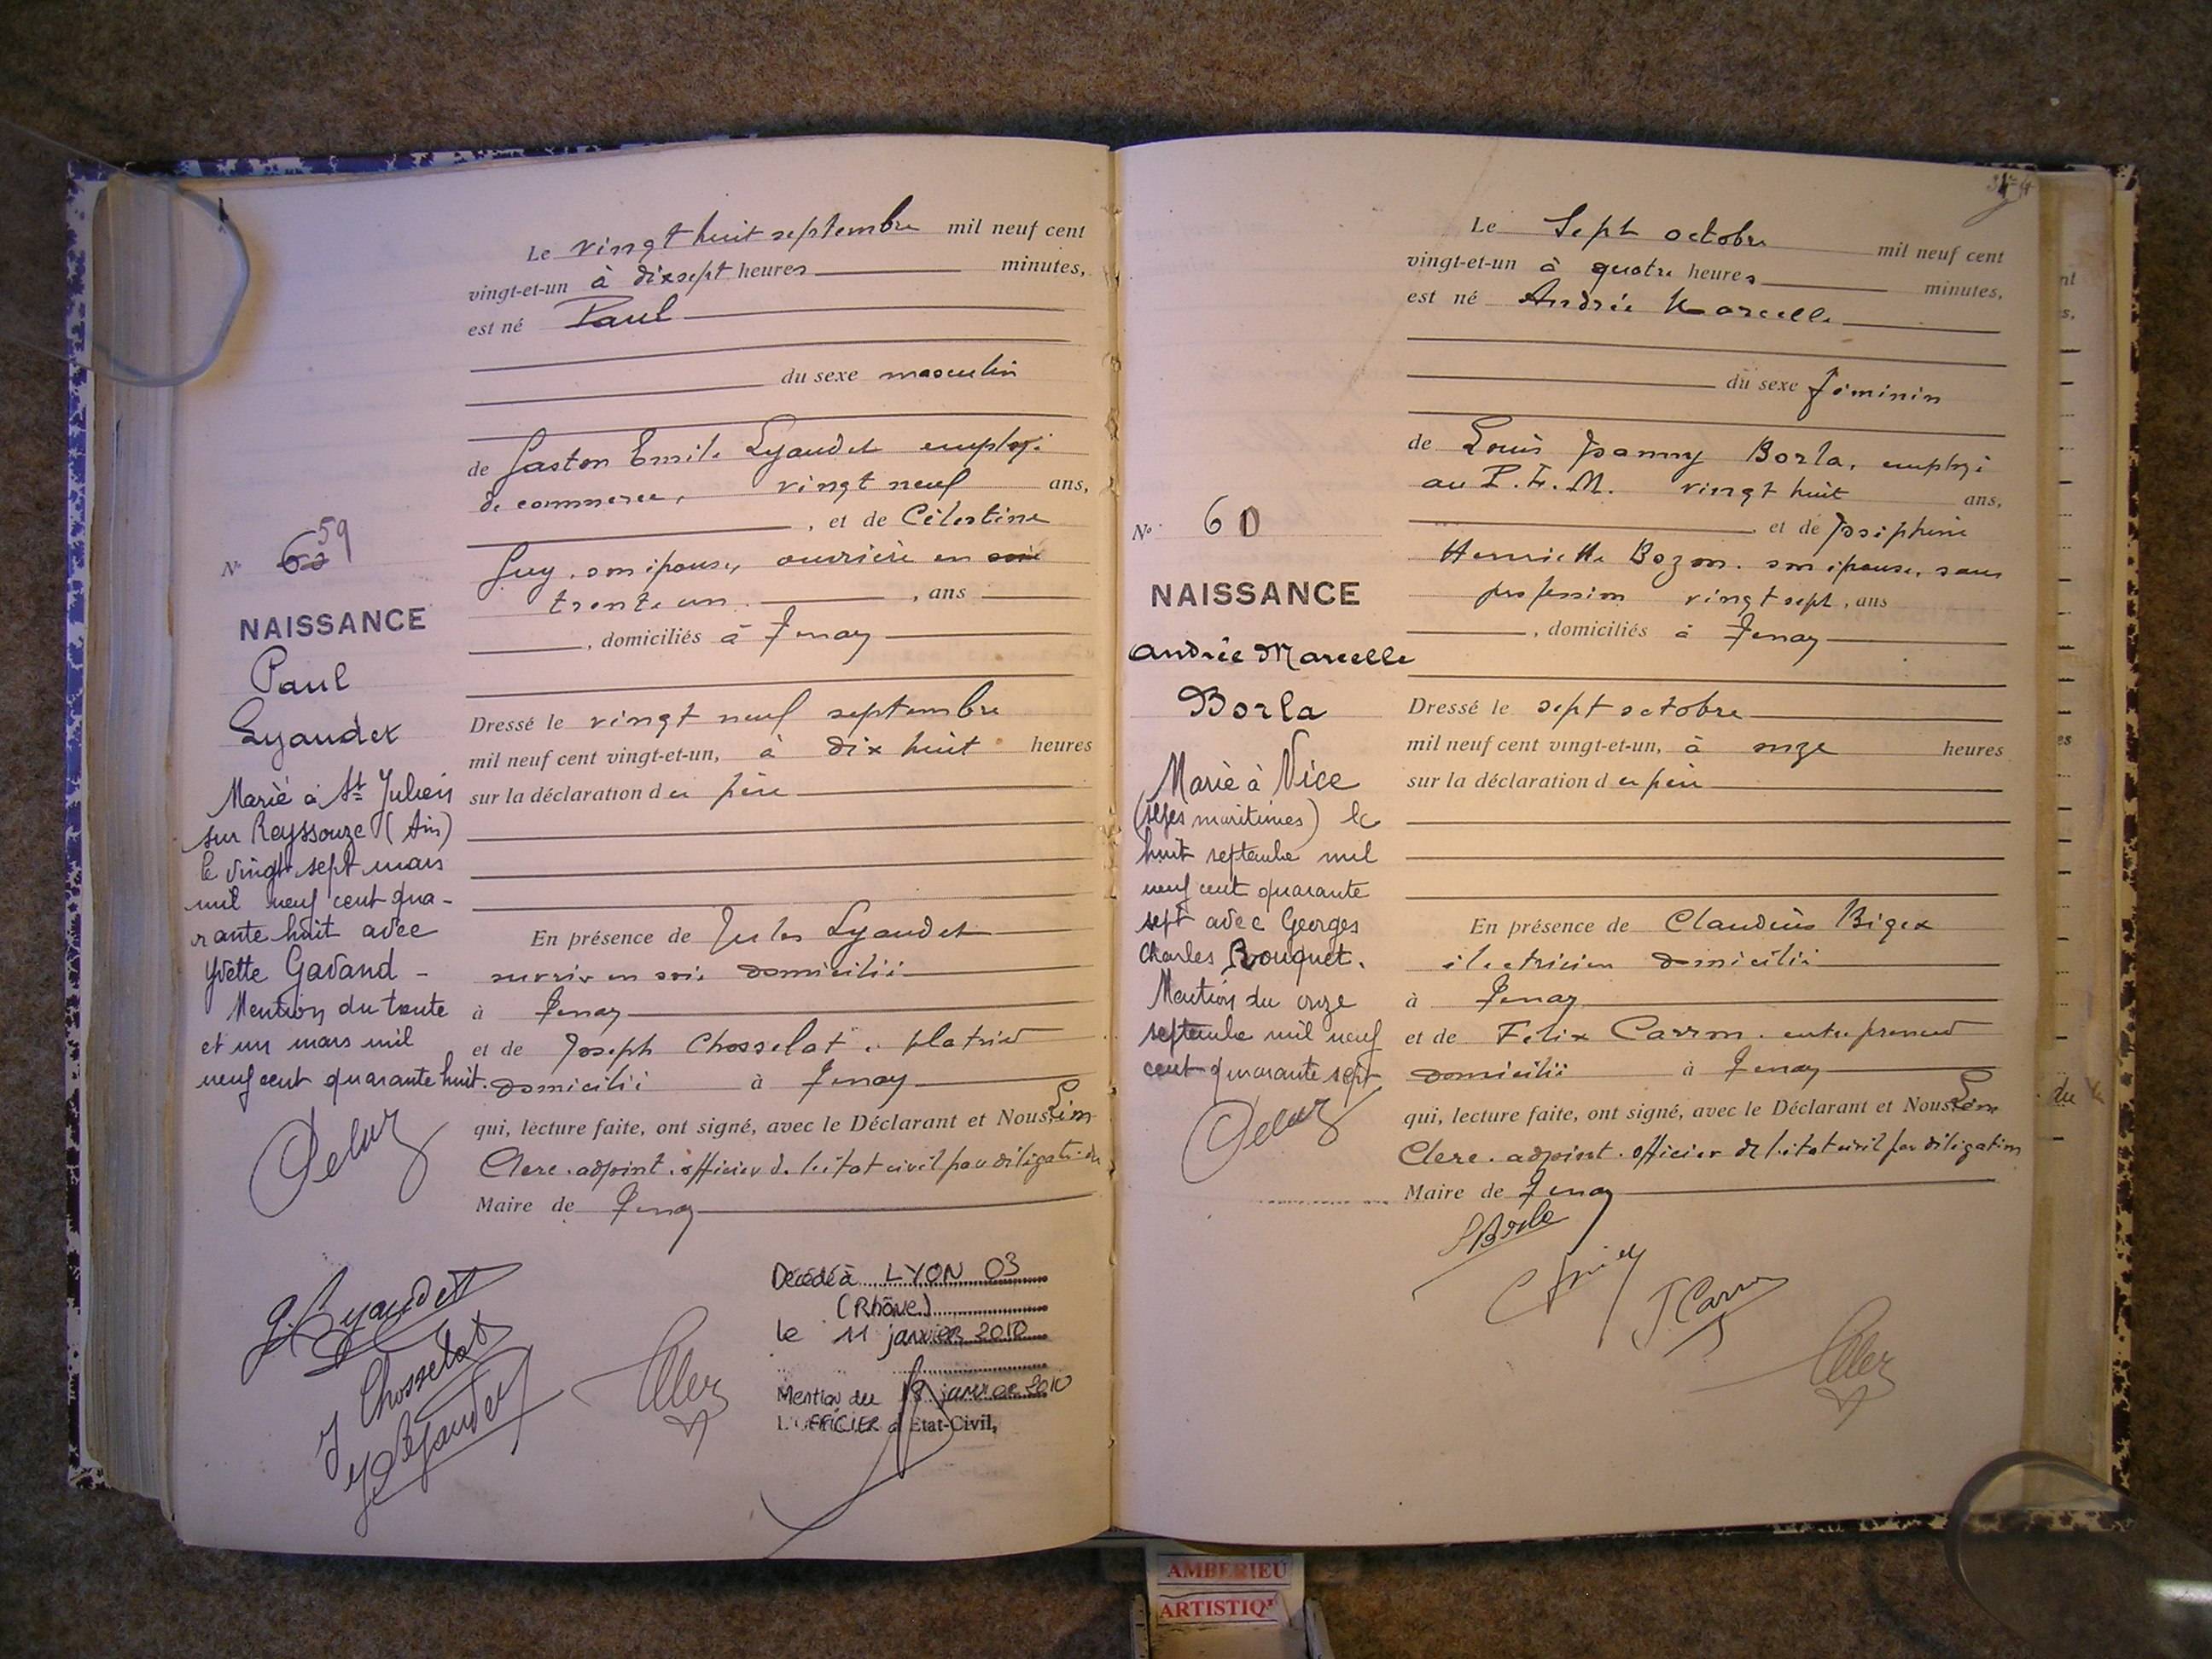 Le vingt huit septembre mil neuf cent
vingt-et-un à dix sept heures minutes,
est né Paul
du sexe masculin
de Gaston Emile Lyaudet employé
de commerce, vingt neuf ans,
, et de Célestine
Guy, son épouse, ouvrière en soie
trente un , ans
, domiciliés à Tenay
Dressé le vingt neuf septembre
mil neuf cent vingt-et-un, à dix huit heures
sur la déclaration du père
En présence de Jules Lyaudet
ouvrier en soie domicilié
à Tenay
et de Joseph Chosselat, platrier
domicilié à Tenay
qui, lecture faite, ont signé, avec le Déclarant et Nous, Léon
Clerc, adjoint, officier de l'état civil par délégation du
Maire de Tenay
No 60 59
NAISSANCE
Paul
Lyaudet
Marié à St Julien
sur Reyssouze (Ain)
le vingt sept mars
mil neuf cent qua-
rante huit avec
Yvette Gavand -
Mention du trente
et un mars mil
neuf cent quarante huit.
G. Lyaudet
J Chosselat
J Lyaudet
Clerc
Décédé à LYON 03
(Rhône)
le 11 janvier 2010
Mention du 18 janvier 2010
L'OFFICIER d'Etat-Civil,
Le Sept octobre mil neuf cent
vingt-et-un à quatre heures minutes,
est né Andrée Marcelle
du sexe féminin
de Louis Joanny Borla, employé
au P.L.M. vingt huit ans,
et de Joséphine
Henriette Bozon, son épouse, sans
profession vingt sept, ans
, domiciliés à Tenay
Dressé le sept octobre
mil neuf cent vingt-et-un, à onze heures
sur la déclaration du père
En présence de Claudius Bigex
électricien domicilié
à Tenay
et de Félix Carron, entrepreneur
domicilié à Tenay
qui, lecture faite, ont signé, avec le Déclarant et Nous Léon
Clerc, adjoint, officier de l'état civil par délégation
Maire de Tenay
No 60
NAISSANCE
Andrée Marcelle
Borla
Marié à Nice
(Alpes maritimes) le
huit septembre mil
neuf cent quarante
sept avec Georges
Charles Bouquet.
Mention du onze
septembre mil neuf
cent quarante sept
LBorla
Clerc
AMBERIEU
ARTISTIQ